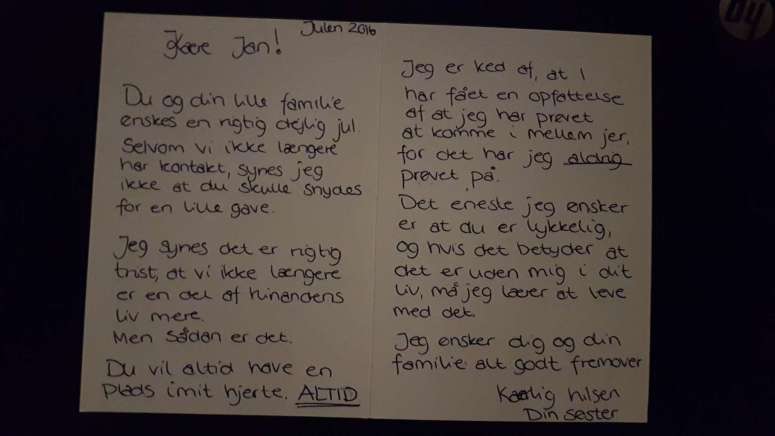 Julen 2016
Kære Jan!
Du og din lille familie
ønskes en rigtig dejlig jul.
Selvom vi ikke længere
har kontakt, synes jeg
ikke at du skulle snydes
for en lille gave.
Jeg synes det er rigtig
trist, at vi ikke længere
er en del af hinandens
liv mere.
Men sådan er det.
Du vil altid have en
Plads i mit hjerte. ALTID
Jeg er ked af, at I
har fået en opfattelse
af at jeg har prøvet
at komme i mellem jer,
for det har jeg aldrig
prøvet på.
Det eneste jeg ønsker
er at du er lykkelig,
og hvis det betyder at
det er uden mig i dit
liv, må jeg lærer at leve
med det.
Jeg ønsker dig og din
familie alt godt fremover
Kærlig hilsen
Din søster